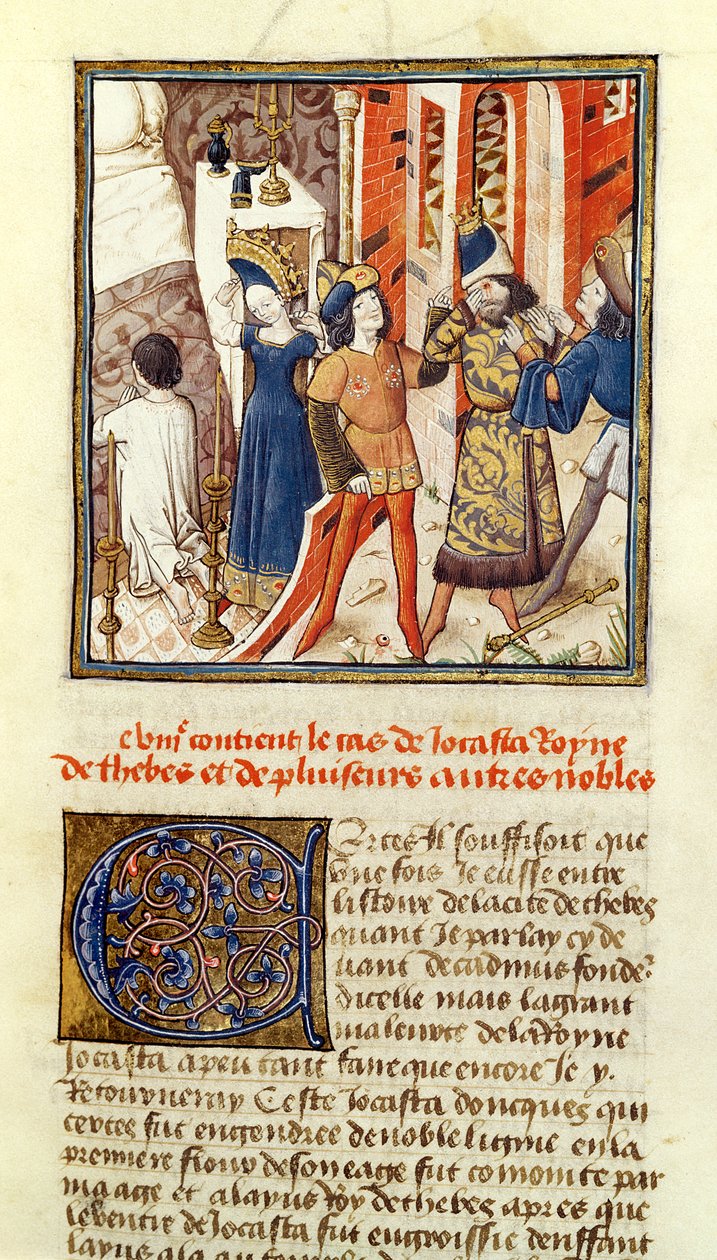 e viije contient le cas de Jocasta Royne
de thebes et de pluiseurs autres nobles
Certes Il souffisoit que
vne fois Je eusse entre
listoire de la cite de thebes
quant Je parlay cy de
uant de cadmus fonder
dicelle mais la grant
maleurte de la Royne
Jocasta a peu tant faire que encore Je y
Retourneray Ceste Jocasta doncques qui
certes fut engendree de noble lignie en la
premiere fleur de son eage fut conioincte par
mariage et a layus Roy de thebes apres que
le ventre de Jocasta fut engroissie denffant
layus ala au temple